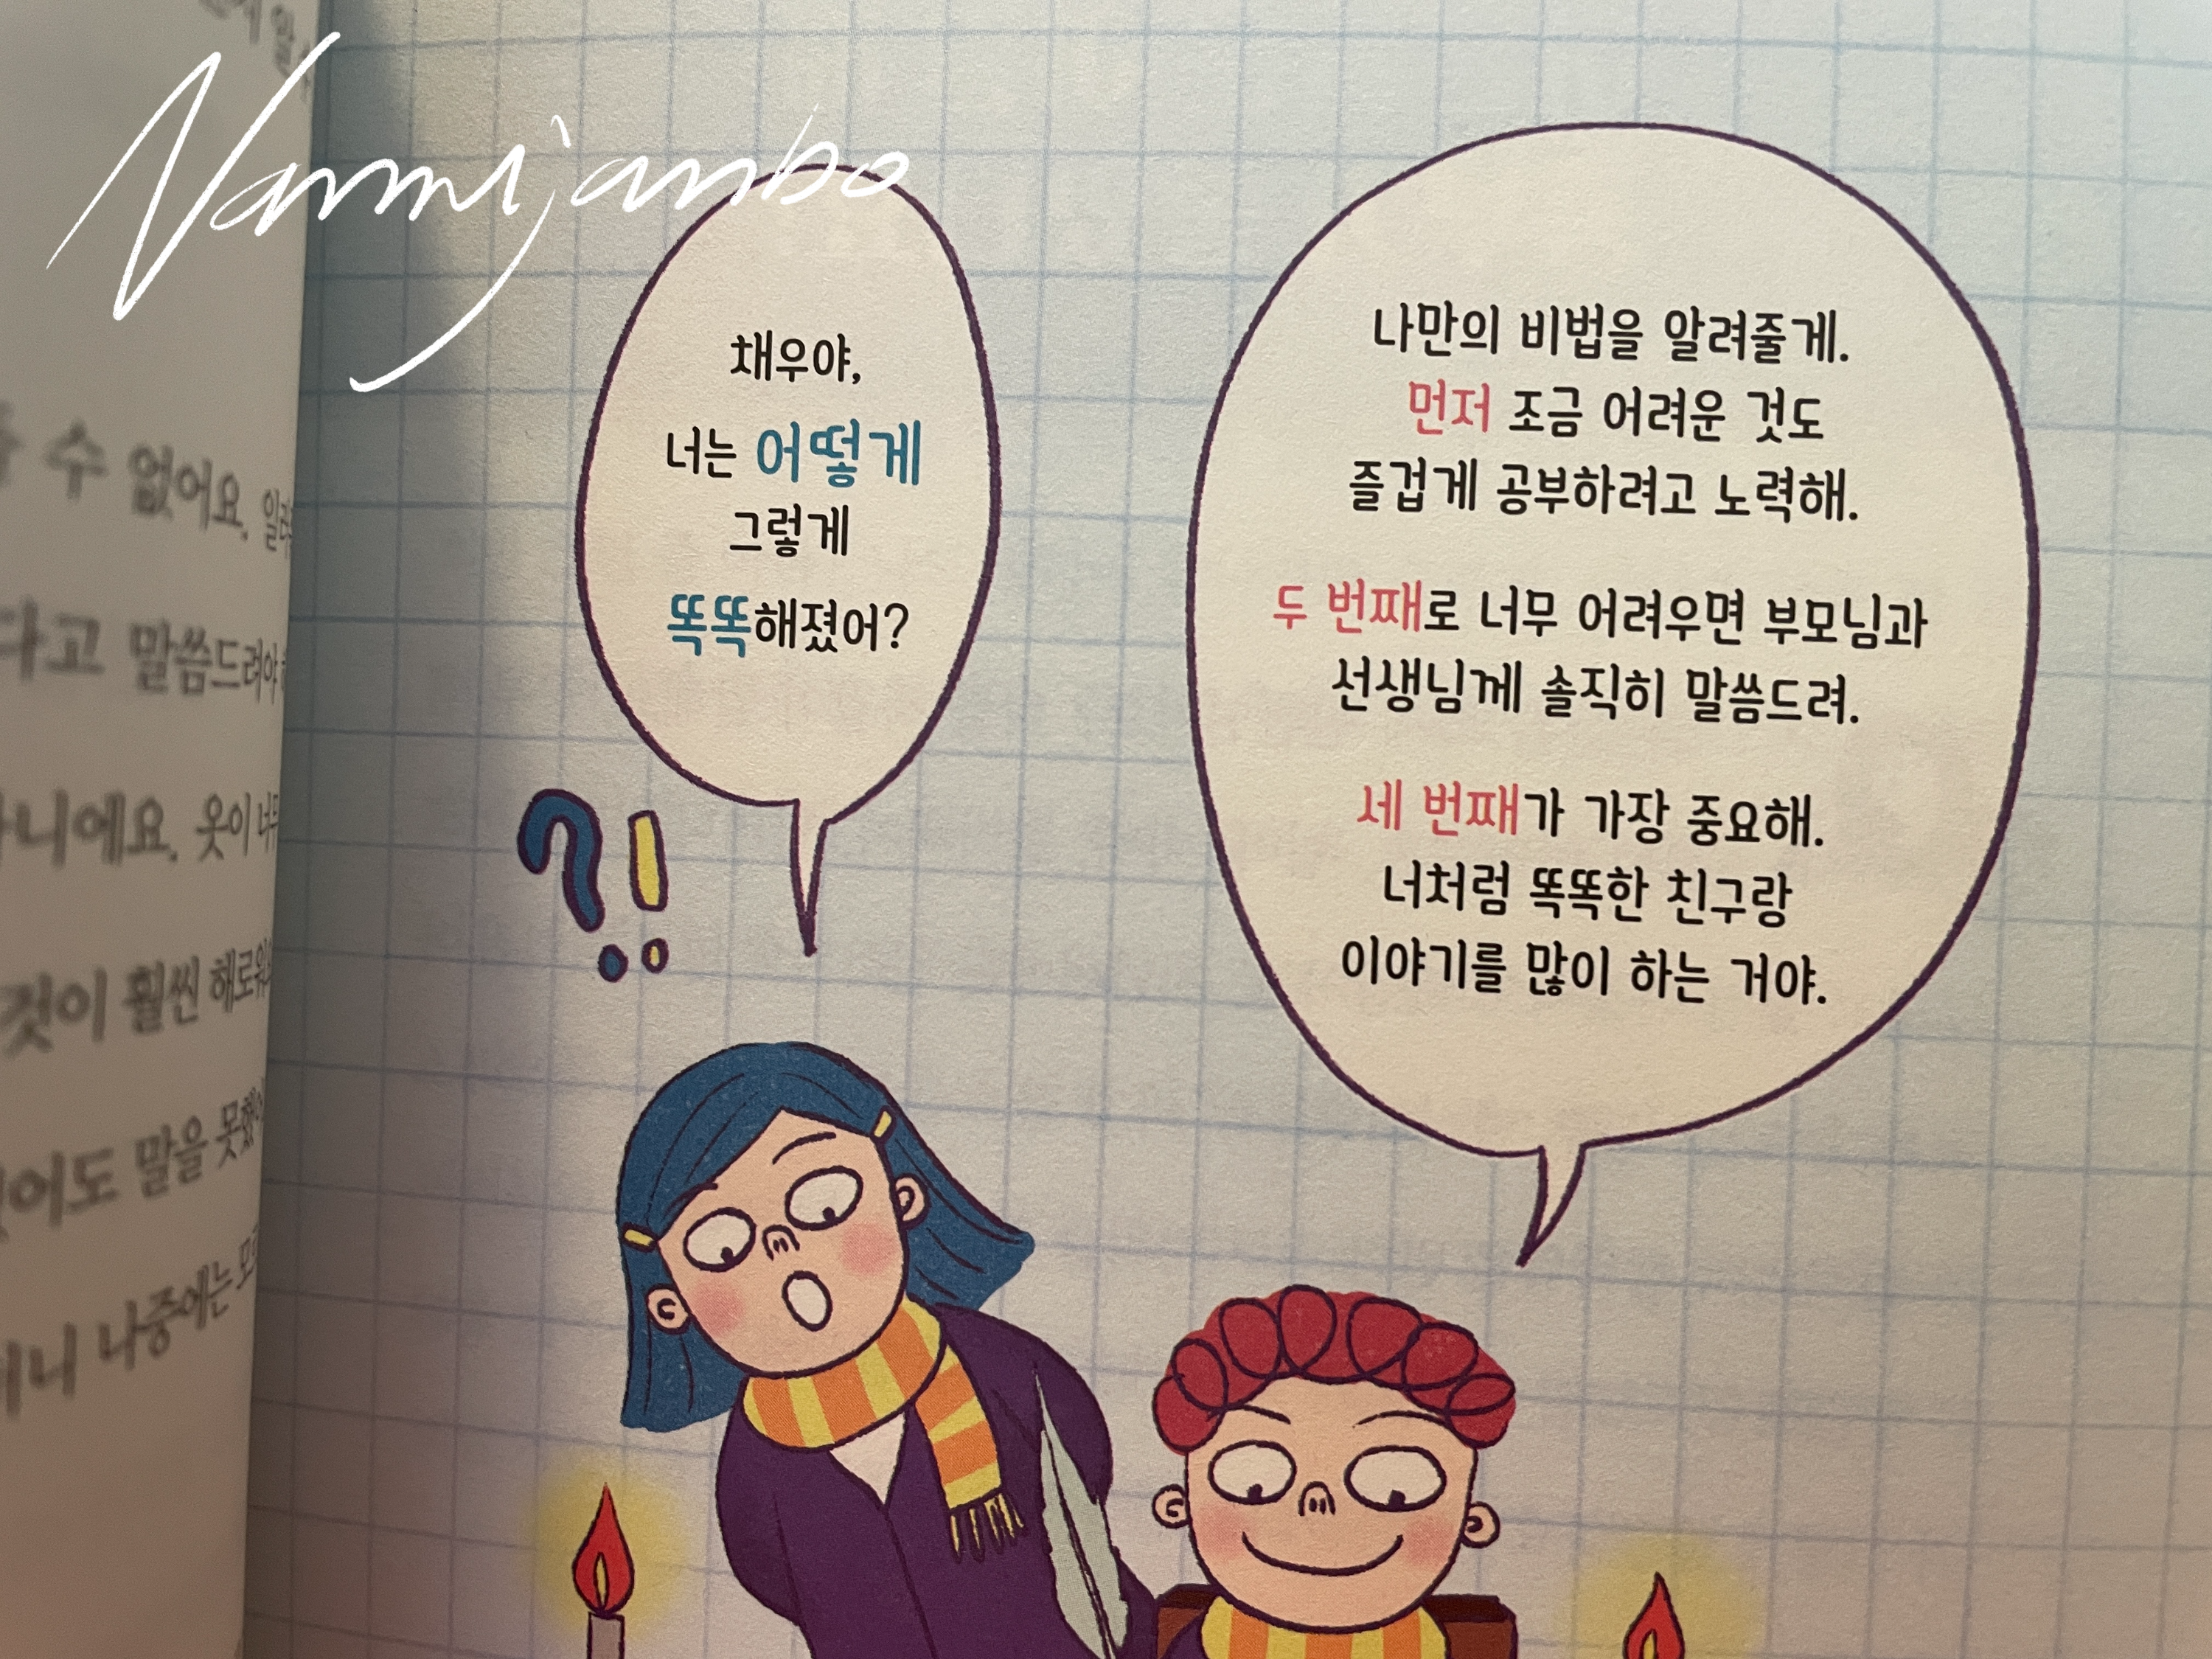 Nammijambo
수 없어요.
다고 말씀드려야
니에요. 옷이 너무
것이 훨씬 해로워
말을 못했
나중에는
채우야,
너는 어떻게
그렇게
똑똑해졌어?
?!
나만의 비법을 알려줄게.
먼저 조금 어려운 것도
즐겁게 공부하려고 노력해.
두 번째로 너무 어려우면 부모님과
선생님께 솔직히 말씀드려.
세 번째가 가장 중요해.
너처럼 똑똑한 친구랑
이야기를 많이 하는 거야.